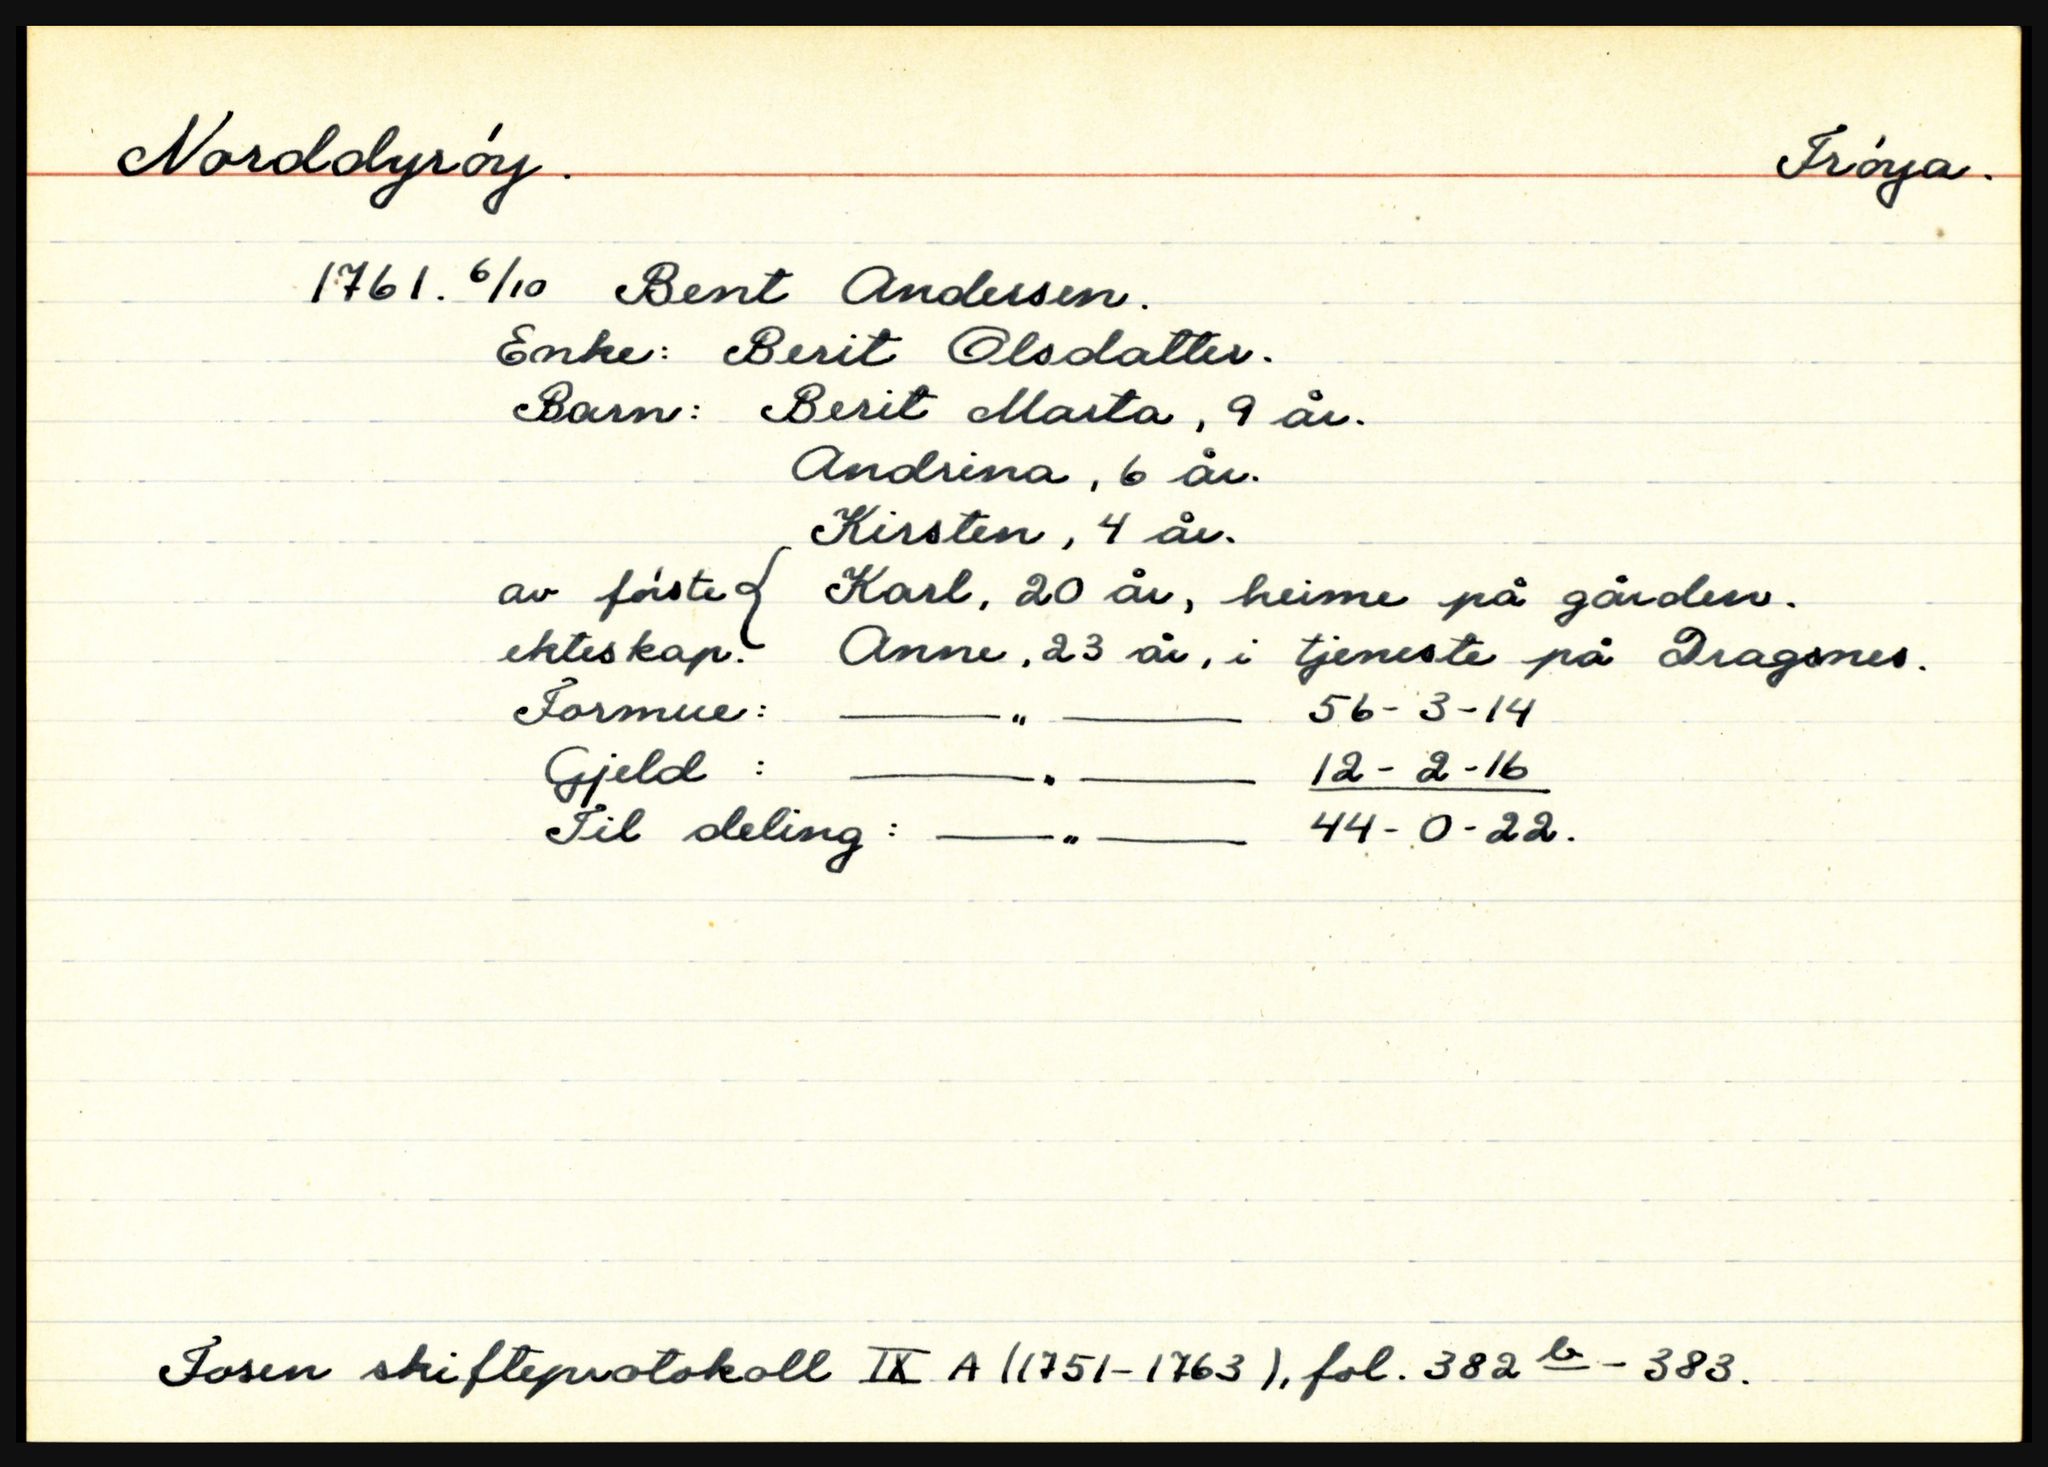 Norddyrøy. Frøya.
1761. 6/10 Bent Andersen.
Enke: Berit Olsdatter.
Barn: Berit Marta, 9 år.
Andrina, 6 år.
Kirsten, 4 år.
av første { Karl, 20 år, heime på gården.
ekteskap. Anne, 23 år, i tjeneste på Dragsnes.
Formue: —— " —— 56 - 3 - 14
Gjeld : —— " —— 12 - 2 - 16
Til deling: —— " —— 44 - 0 - 22.
Fosen skifteprotokoll IX A (1751-1763), fol. 382 b - 383.